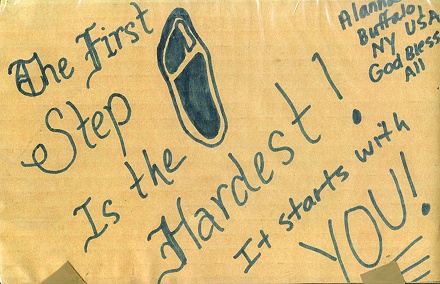 The First
Step
Is the
Hardest!
It starts with
YOU!
Alanna
Buffalo,
NY USA
God Bless
All